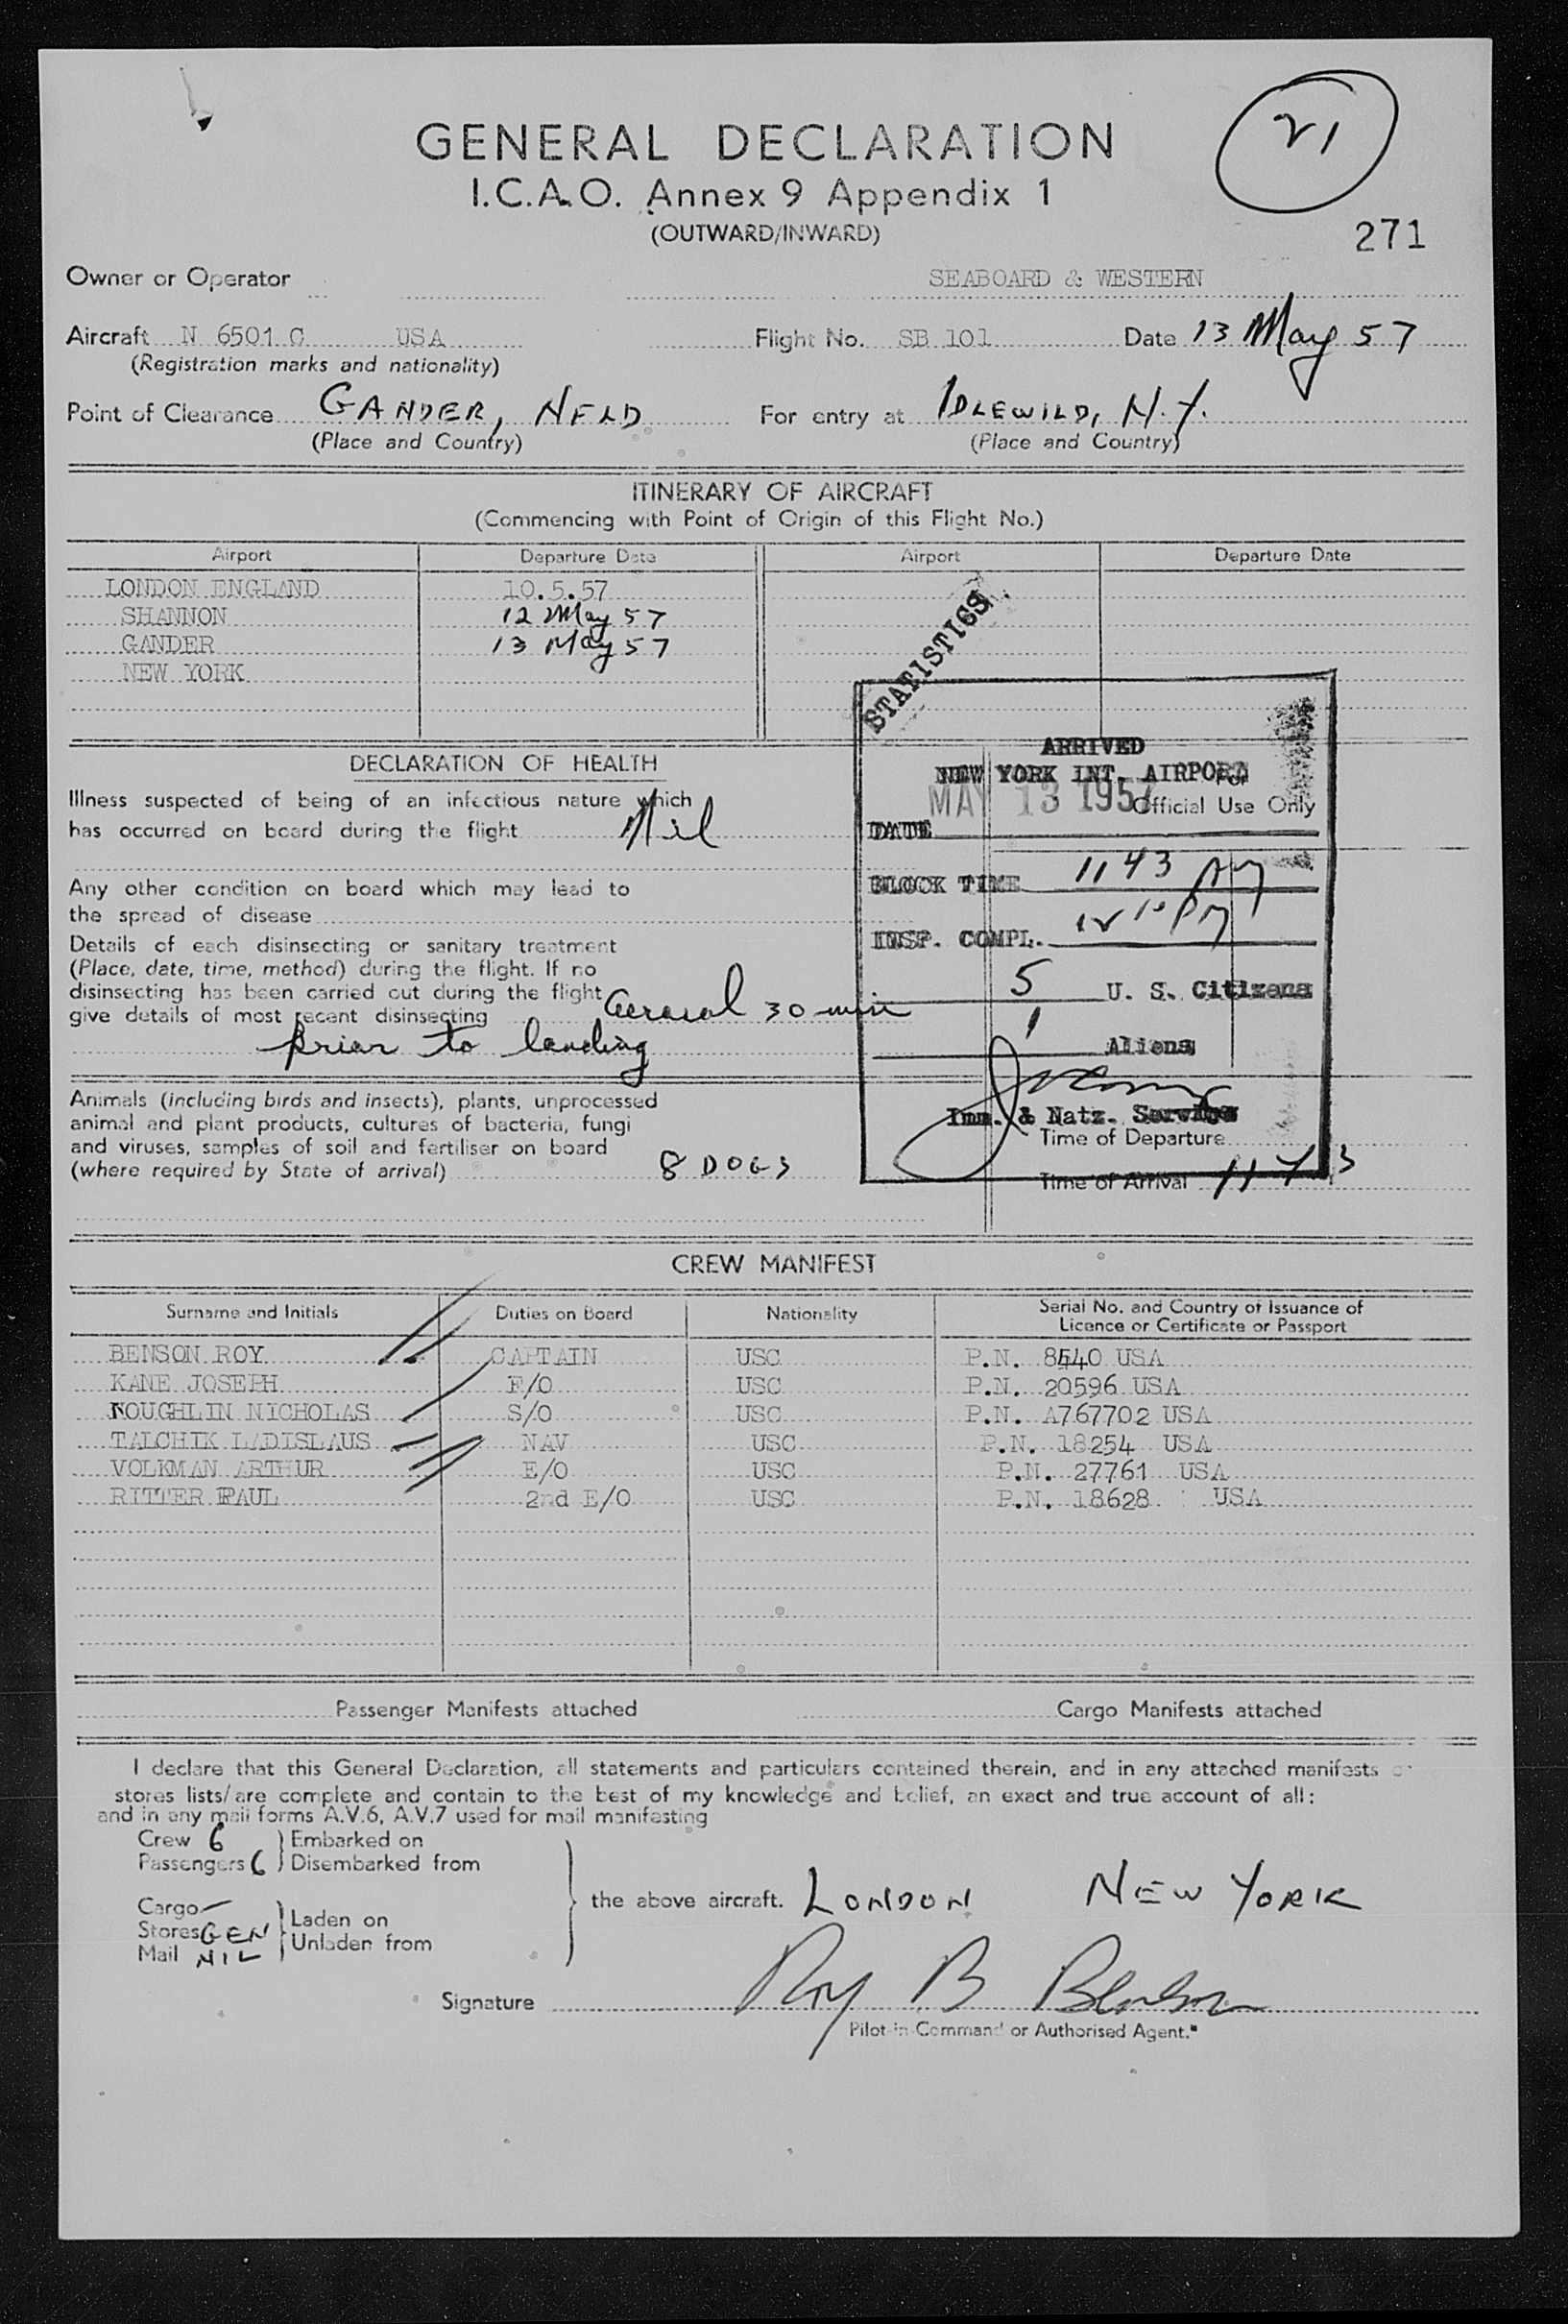 21
GENERAL DECLARATION
I.C.A.O. Annex 9 Appendix 1
(OUTWARD/INWARD)
271
Owner or Operator SEABOARD & WESTERN
Aircraft N 6501 C USA Flight No. SB 101 Date 13 May 57
(Registration marks and nationality)
Point of Clearance GANDER, NFLD For entry at IDLEWILD, N.Y.
(Place and Country) (Place and Country)
ITINERARY OF AIRCRAFT
(Commencing with Point of Origin of this Flight No.)
Airport Departure Date Airport Departure Date
LONDON ENGLAND 10.5.57
SHANNON 12 May 57
GANDER 13 May 57
NEW YORK
STATISTICS
ARRIVED
NEW YORK INT. AIRPORT
For
Official Use Only
MAY 13 1957
DATE
BLOCK TIME 1143
INSP. COMPL.
5 U. S. Citizens
1 Aliens
Imm. & Natz. Service
Time of Departure
Time of Arrival 1143
DECLARATION OF HEALTH
Illness suspected of being of an infectious nature which
has occurred on board during the flight Nil
Any other condition on board which may lead to
the spread of disease
Details of each disinsecting or sanitary treatment
(Place, date, time, method) during the flight. If no
disinsecting has been carried out during the flight
give details of most recent disinsecting Aerosol 30 min
prior to landing
Animals (including birds and insects), plants, unprocessed
animal and plant products, cultures of bacteria, fungi
and viruses, samples of soil and fertiliser on board
(where required by State of arrival) 8 DOGS
CREW MANIFEST
Surname and Initials Duties on Board Nationality Serial No. and Country of Issuance of
Licence or Certificate or Passport
BENSON ROY CAPTAIN USC P.N. 8540 USA
KANE JOSEPH F/O USC P.N. 20596 USA
ROUGHLIN NICHOLAS S/O USC P.N. A767702 USA
TALCHIK LADISLAUS NAV USC P.N. 18254 USA
VOLKMAN ARTHUR E/O USC P.N. 27761 USA
RITTER PAUL 2nd E/O USC P.N. 18628 USA
Passenger Manifests attached Cargo Manifests attached
I declare that this General Declaration, all statements and particulars contained therein, and in any attached manifests or
stores lists/are complete and contain to the best of my knowledge and belief, an exact and true account of all:
and in any mail forms A.V.6, A.V.7 used for mail manifesting
Crew 6 Embarked on
Passengers 6 Disembarked from
the above aircraft. LONDON NEW YORK
Cargo —
Stores GEN Laden on
Mail NIL Unladen from
Signature Roy B Benson
Pilot-in-Command or Authorised Agent.*